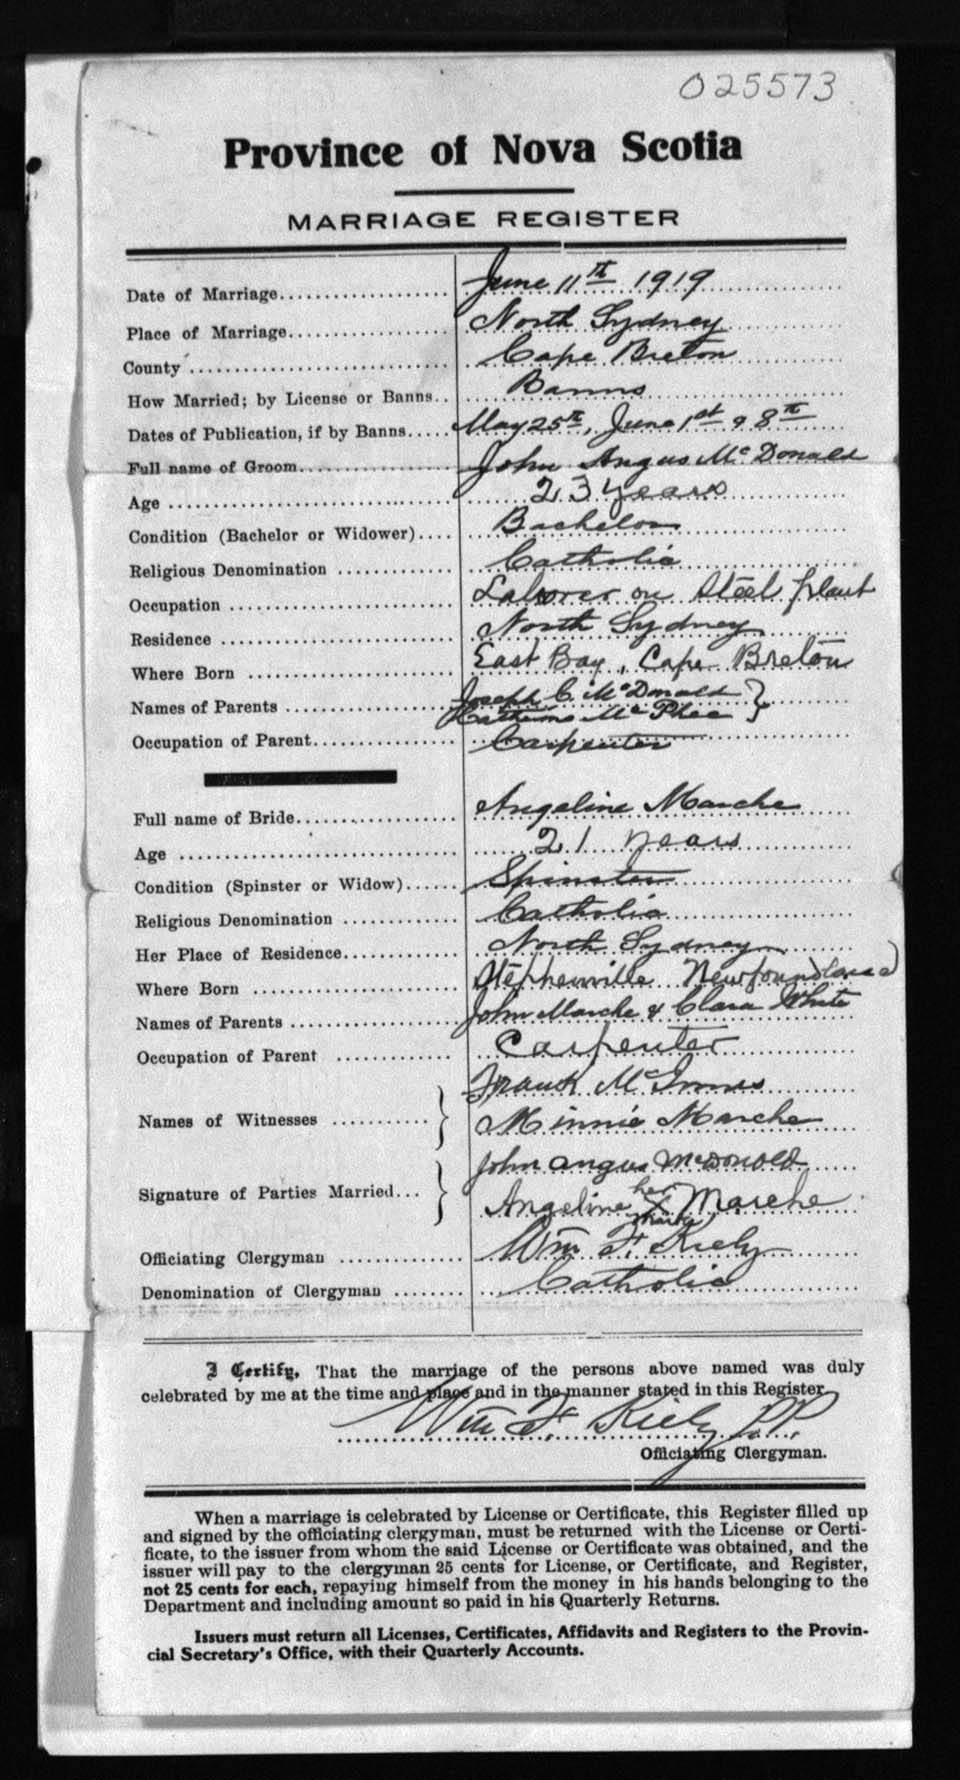 025573
Province of Nova Scotia
MARRIAGE REGISTER
Date of Marriage.................... June 11th 1919
Place of Marriage................... North Sydney
County .............................. Cape Breton
How Married; by License or Banns.. Banns
Dates of Publication, if by Banns..... May 25th, June 1st & 8th
Full name of Groom.................. John Angus McDonald
Age ................................. 23 years
Condition (Bachelor or Widower).... Bachelor
Religious Denomination ............. Catholic
Occupation .......................... Laborer on Steel plant
Residence ........................... North Sydney
Where Born ........................ East Bay, Cape Breton
Names of Parents ................... Joseph C. McDonald
Catherine McPhee }
Occupation of Parent................ Carpenter
Full name of Bride.................. Angeline Marche
Age ................................ 21 years
Condition (Spinster or Widow)...... Spinster
Religious Denomination ............. Catholic
Her Place of Residence.............. North Sydney
Where Born ........................ Stephenville Newfoundland
Names of Parents ................... John Marche & Clara White
Occupation of Parent .............. Carpenter
Frank McInnis
Names of Witnesses ........... } Minnie Marche
John Angus McDonald
Signature of Parties Married... } Angeline her X mark Marche
Officiating Clergyman .............. Wm F. Kiely
Denomination of Clergyman ........ Catholic
I Certify, That the marriage of the persons above named was duly
celebrated by me at the time and place and in the manner stated in this Register.
Wm F. Kiely P.P.
Officiating Clergyman.
When a marriage is celebrated by License or Certificate, this Register filled up
and signed by the officiating clergyman, must be returned with the License or Certi-
ficate, to the issuer from whom the said License or Certificate was obtained, and the
issuer will pay to the clergyman 25 cents for License, or Certificate, and Register,
not 25 cents for each, repaying himself from the money in his hands belonging to the
Department and including amount so paid in his Quarterly Returns.
Issuers must return all Licenses, Certificates, Affidavits and Registers to the Provin-
cial Secretary's Office, with their Quarterly Accounts.